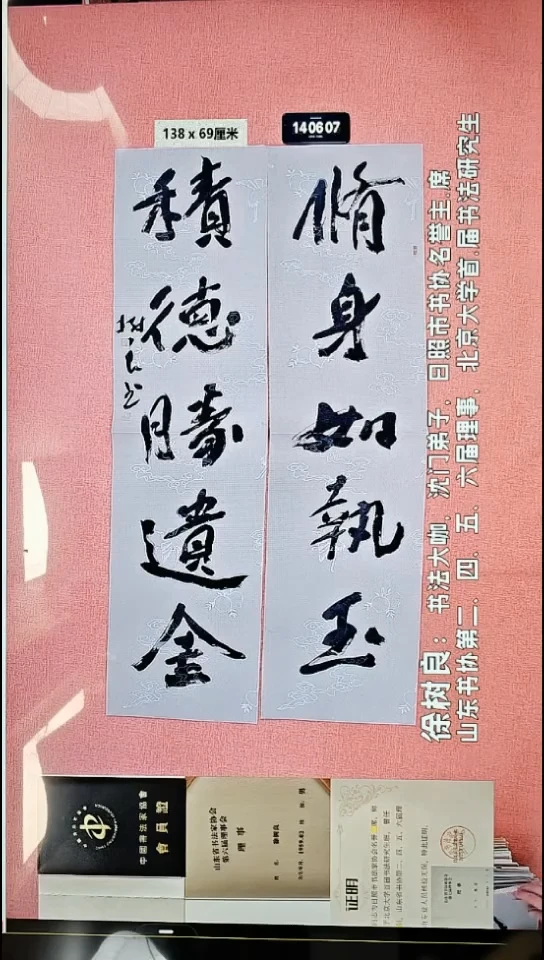 138 x 69厘米
140607
脩身如執玉
積德勝遺金
樹良书
徐树良：书法大咖．沈门弟子．日照市书协名誉主席
山东书协第二．四．五．六届理事．北京大学首届书法研究生
中國書法家協會
會員證
山东省书法家协会
第六届理事会
理事
徐树良
证明